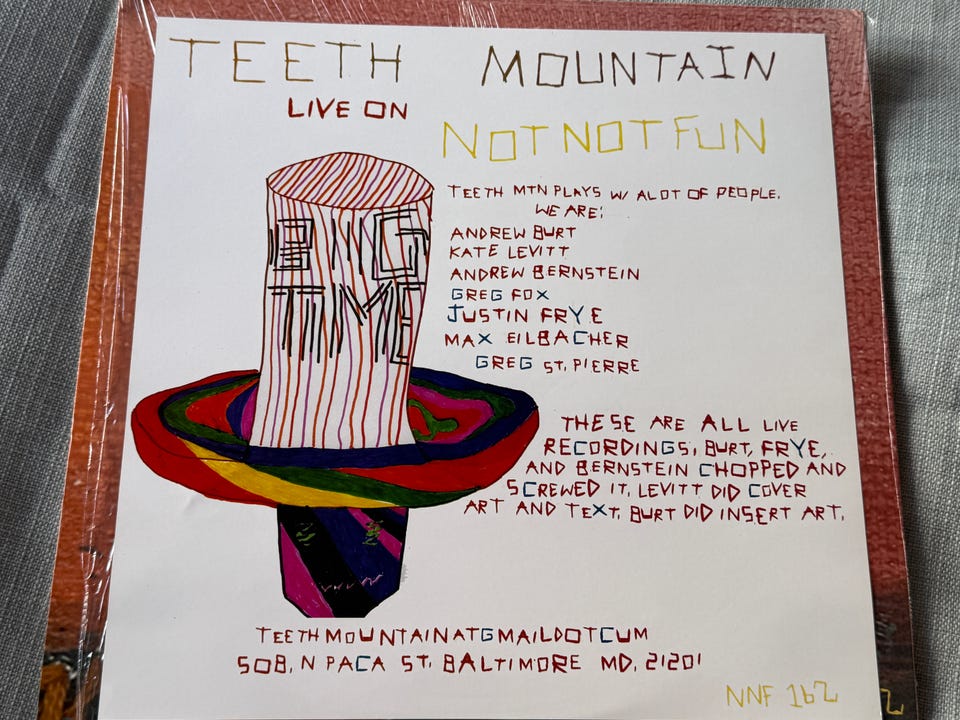 TEETH MOUNTAIN
LIVE ON
NOT NOT FUN
TEETH MTN PLAYS W/ A LOT OF PEOPLE.
WE ARE:
ANDREW BURT
KATE LEVITT
ANDREW BERNSTEIN
GREG FOX
JUSTIN FRYE
MAX EILBACHER
GREG ST. PIERRE
BIG
TIME
THESE ARE ALL LIVE
RECORDINGS, BURT, FRYE,
AND BERNSTEIN CHOPPED AND
SCREWED IT, LEVITT DID COVER
ART AND TEXT, BURT DID INSERT ART.
TEETHMOUNTAINATGMAILDOTCUM
508, N PACA ST, BALTIMORE MD, 21201
NNF 162
2